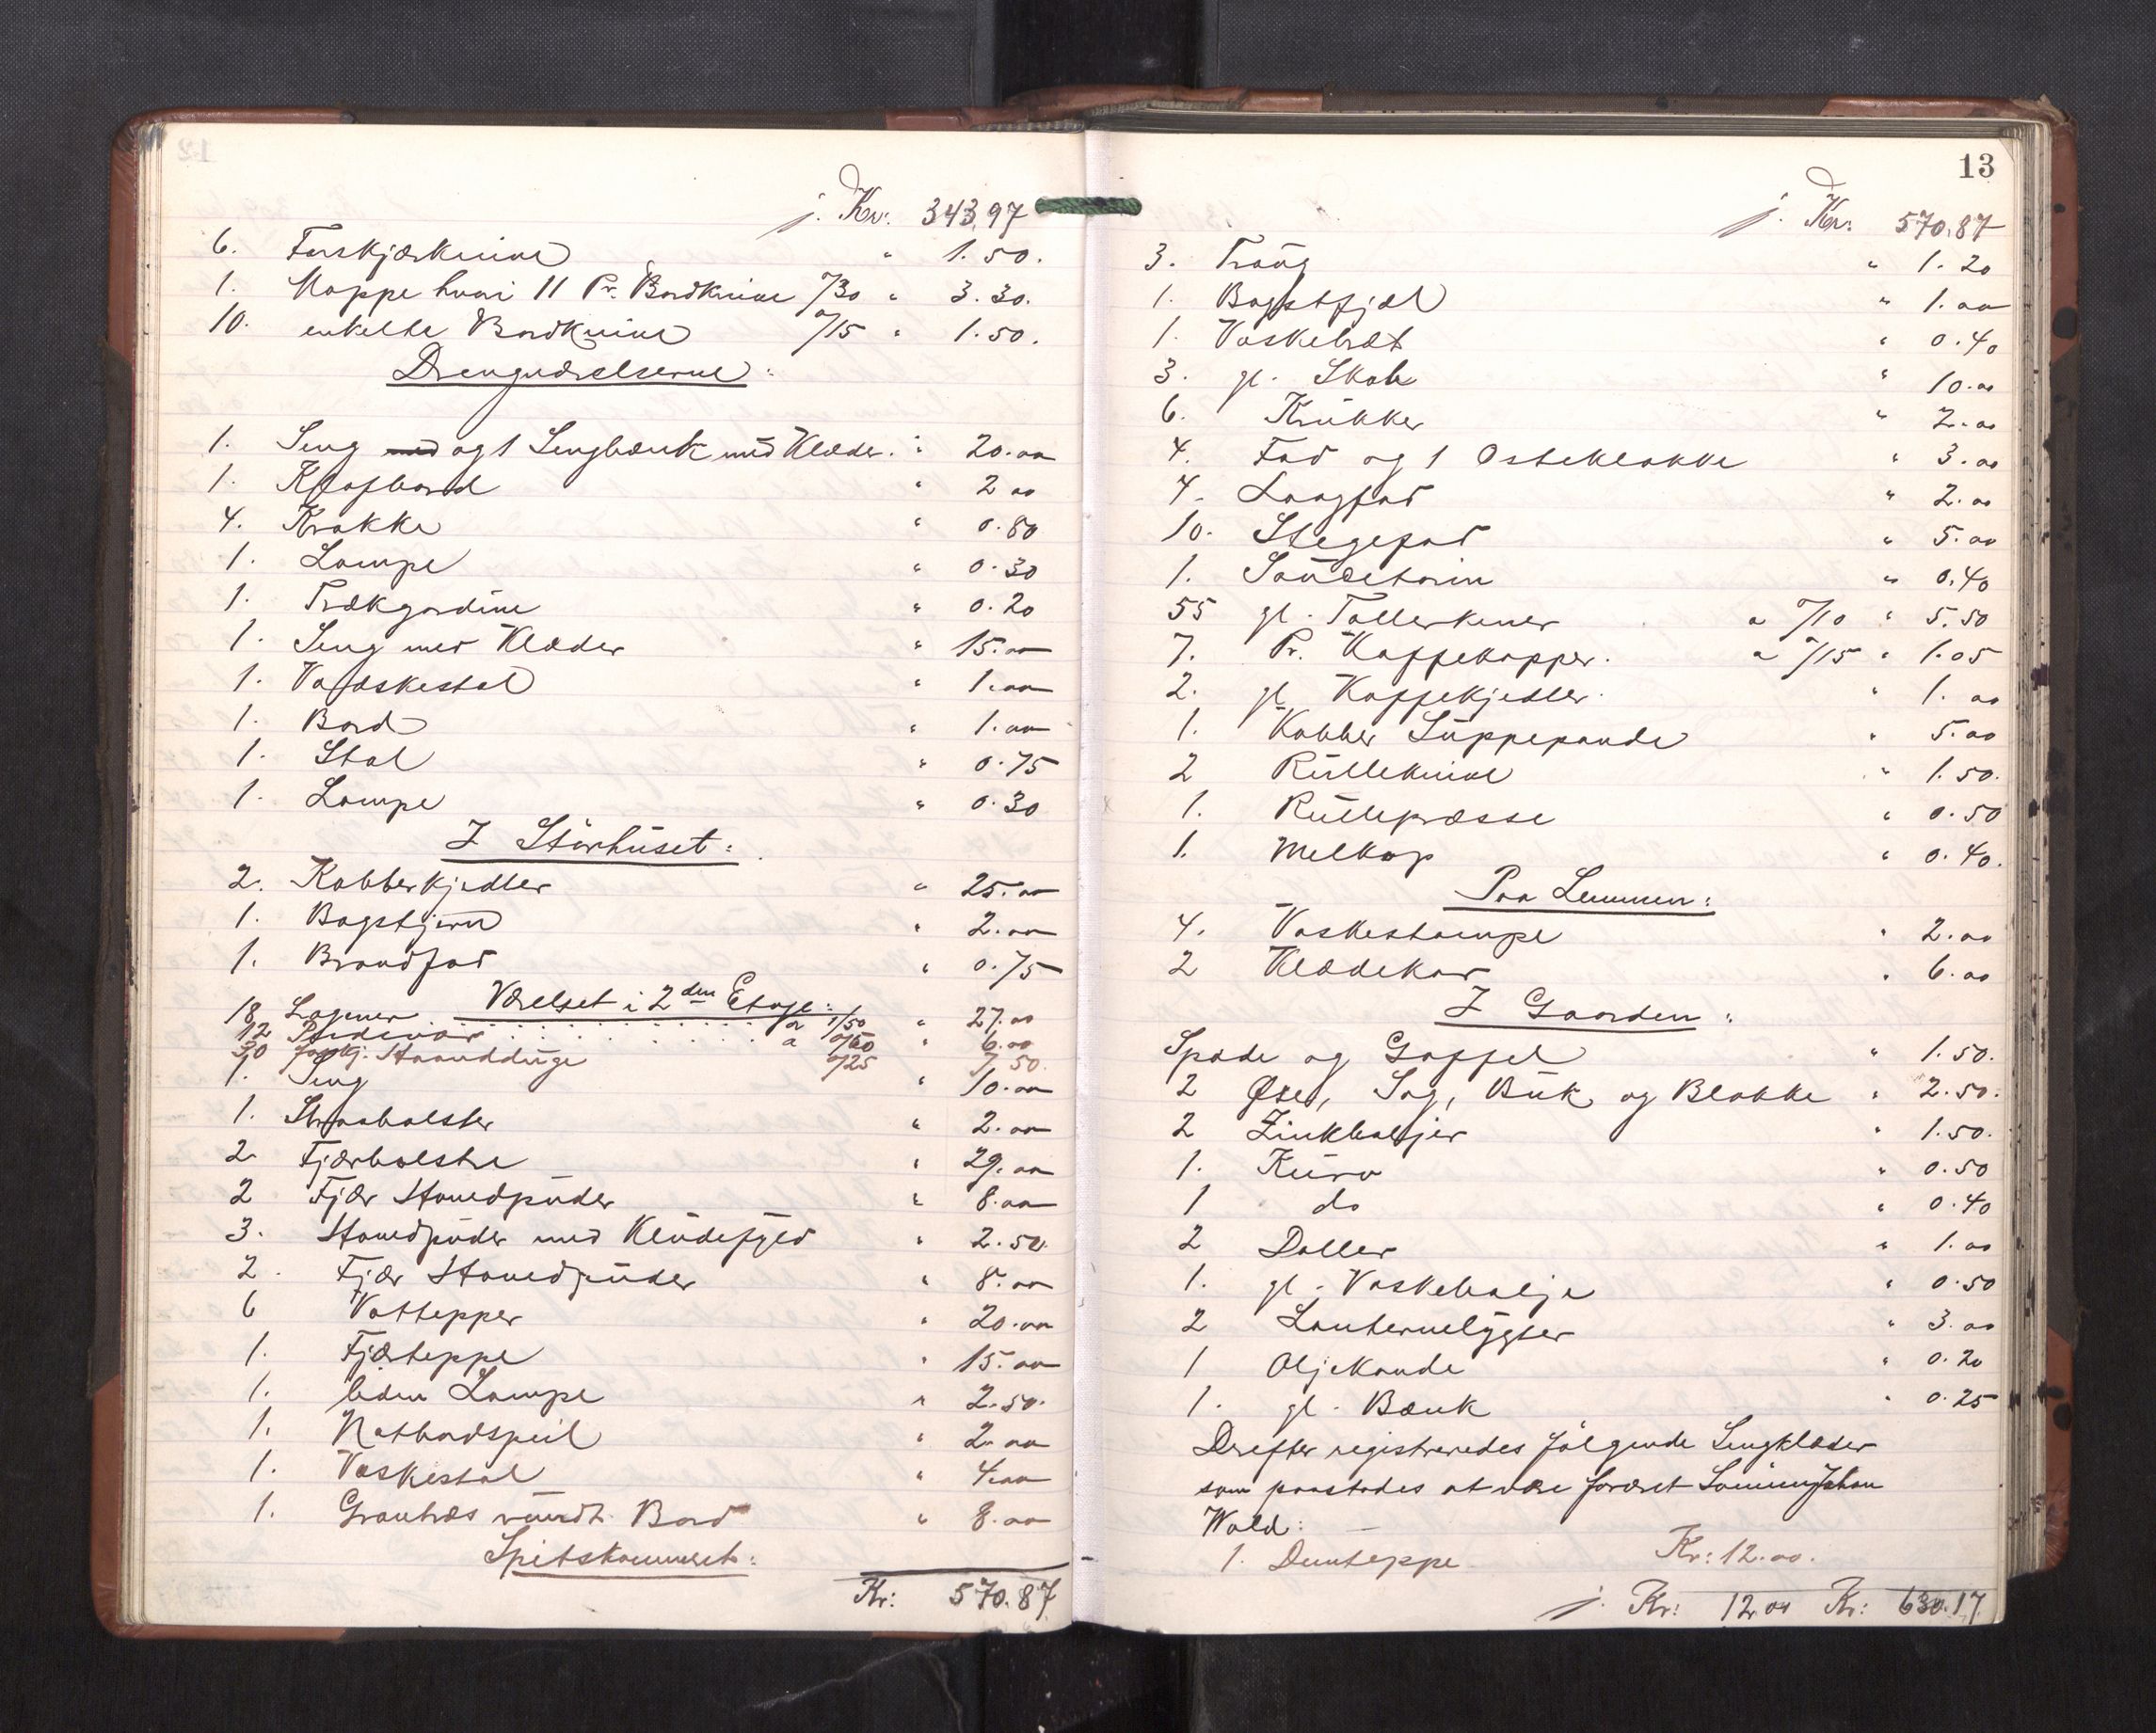 j. Kr. 343.97
6. Forskjærknive " 1.50.
1. Mappe hvori 11 Pr. Bordknive %30 " 3.30.
10. enkelte Bordknive %15 " 1.50.
Drengeværelserne:
1. Seng med og 1 Sengbænk med Klæder. " 20.00
1. Klafbord " 2 00
4. Krakke " 0.80
1. Lampe " 0.30
1. Trækgardine " 0.20
1. Seng med Klæder " 15.00
1. Vadskestol " 1.00
1. Bord " 1.00
1. Stol " 0.75
1. Lampe " 0.30
I Storhuset:
2. Kobberkjedler " 25.00
1. Bagstjern " 2.00
1. Brandfad " 0.75
Værelset i 2den Etage:
18 Lagener a 1/50 " 27.00
12 Pudevar a 0/50 " 6.00
30 forskj. Haandduge 0/25 7 50.
1. Seng " 10.00
1. Straabolster " 2.00
2 Fjærbolstre " 29.00
2 Fjær Hovedpuder " 8.00
3. Hovedpuder med Kludefyld " 2.50.
2. Fjær Hovedpuder " 8.00
6 Vattepper " 20.00
1. Fjærteppe " 15.00
1. liden Lampe " 2.50.
1. Natbordspeil " 2.00
1. Vaskestol " 4.00
1. Grantræs rundt Bord " 8.00
Spitskammeret:
Kr: 570.87
13
j. Kr: 570.87
3. Traug " 1.20
1. Bagstfjæl " 1.00
1. Vaskebræt " 0.40
3. gl. Skab " 10.00
6. Krukker " 2.00
4. Fad og 1 Osteklokke " 3.00
4. Langfad " 2.00
10. Stegefad " 5.00
1. Sauceterin " 0.40
55 gl. Tallerkener a %10 " 5.50
7. Pr. Kaffekopper. a %15 " 1.05
2. gl Kaffekjedler. " 1.00
1. Kobber Suppepande " 5.00
2 Rulleknive " 1.50.
1. Rullepræsse " 0.50
1. Melkop " 0.40.
Paa Lemmen:
4. Vaskestampe " 2.00
2 Klædekar " 6.00
I Gaarden:
Spade og Gaffel " 1.50.
2 Øxer, Sag, Buk og Blokke " 2.50.
2 Zinkbaljer " 1.50.
1. Kurv " 0.50
1 do " 0.40
2 Daller " 1.00
1. gl. Vaskebalje " 0.50
2 Lanternelygter " 3.00
1 Oljekande " 0.20
1. gl. Bænk " 0.25
Drefter registreredes følgende Sengklæder
som paastodes at være foræret Johan
Wold:
1. Dunteppe Kr: 12.00.
j. Kr: 12.00 Kr: 630.17